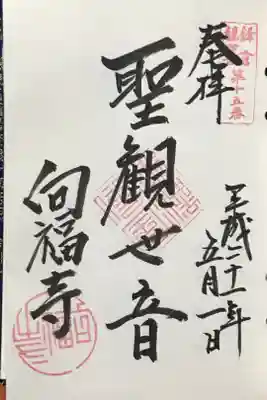 奉拝
鎌倉
観音
第十五番
平成二十一年
五月一日
聖観世音
向福寺